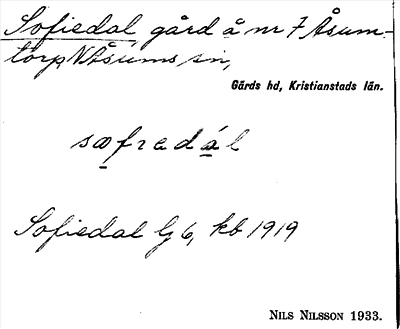 Sofiedal gård å nr 7 Åsum-
torp, N Åsums sn,
Gärds hd, Kristianstads län.
sofiedál
Sofiedal Lg 6, kb 1919
NILS NILSSON 1933.